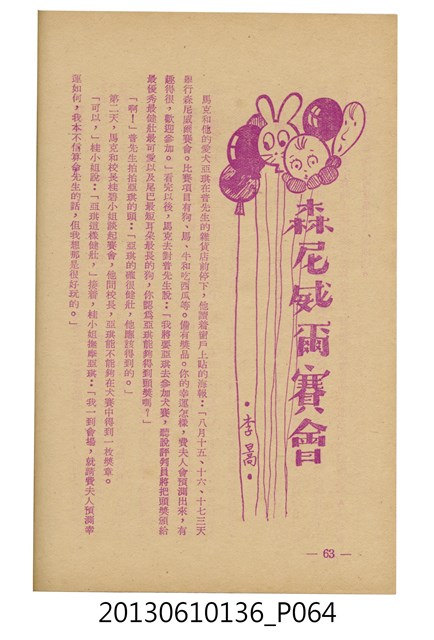 森尼威爾賽會
·李暠·
馬克和他的愛犬亞琪在普先生的雜貨店前停下，他讀着窗戶上貼的海報：「八月十五、十六、十七三天
銀行森尼威爾賽會。比賽項目有狗、馬、牛和吃西瓜等。備有獎品。你的幸運怎樣，費夫人會預測出來，有
趣得很，歡迎參加。」看完以後，馬克去對普先生說：「我將要亞琪去參加犬賽，聽說評判員將把頭獎頒給
最優秀最健壯最可愛以及尾巴最短耳朵最長的狗，你認為亞琪能夠得到頭獎嗎？」
「啊！」普先生拍拍亞琪的頭：「亞琪的確很健壯，他應該得到的。」
第二天，馬克和校長桂碧小姐談起賽會，他問校長，亞琪能不能夠在犬賽中得到一枚獎章。
「可以，」桂小姐說：「亞琪這樣健壯，」接着，桂小姐撫摩亞琪：「我一到會場，就請費夫人預測幸
運如何，我本不信算命先生的話，但我想那是很好玩的。」
— 63 —
20130610136_P064